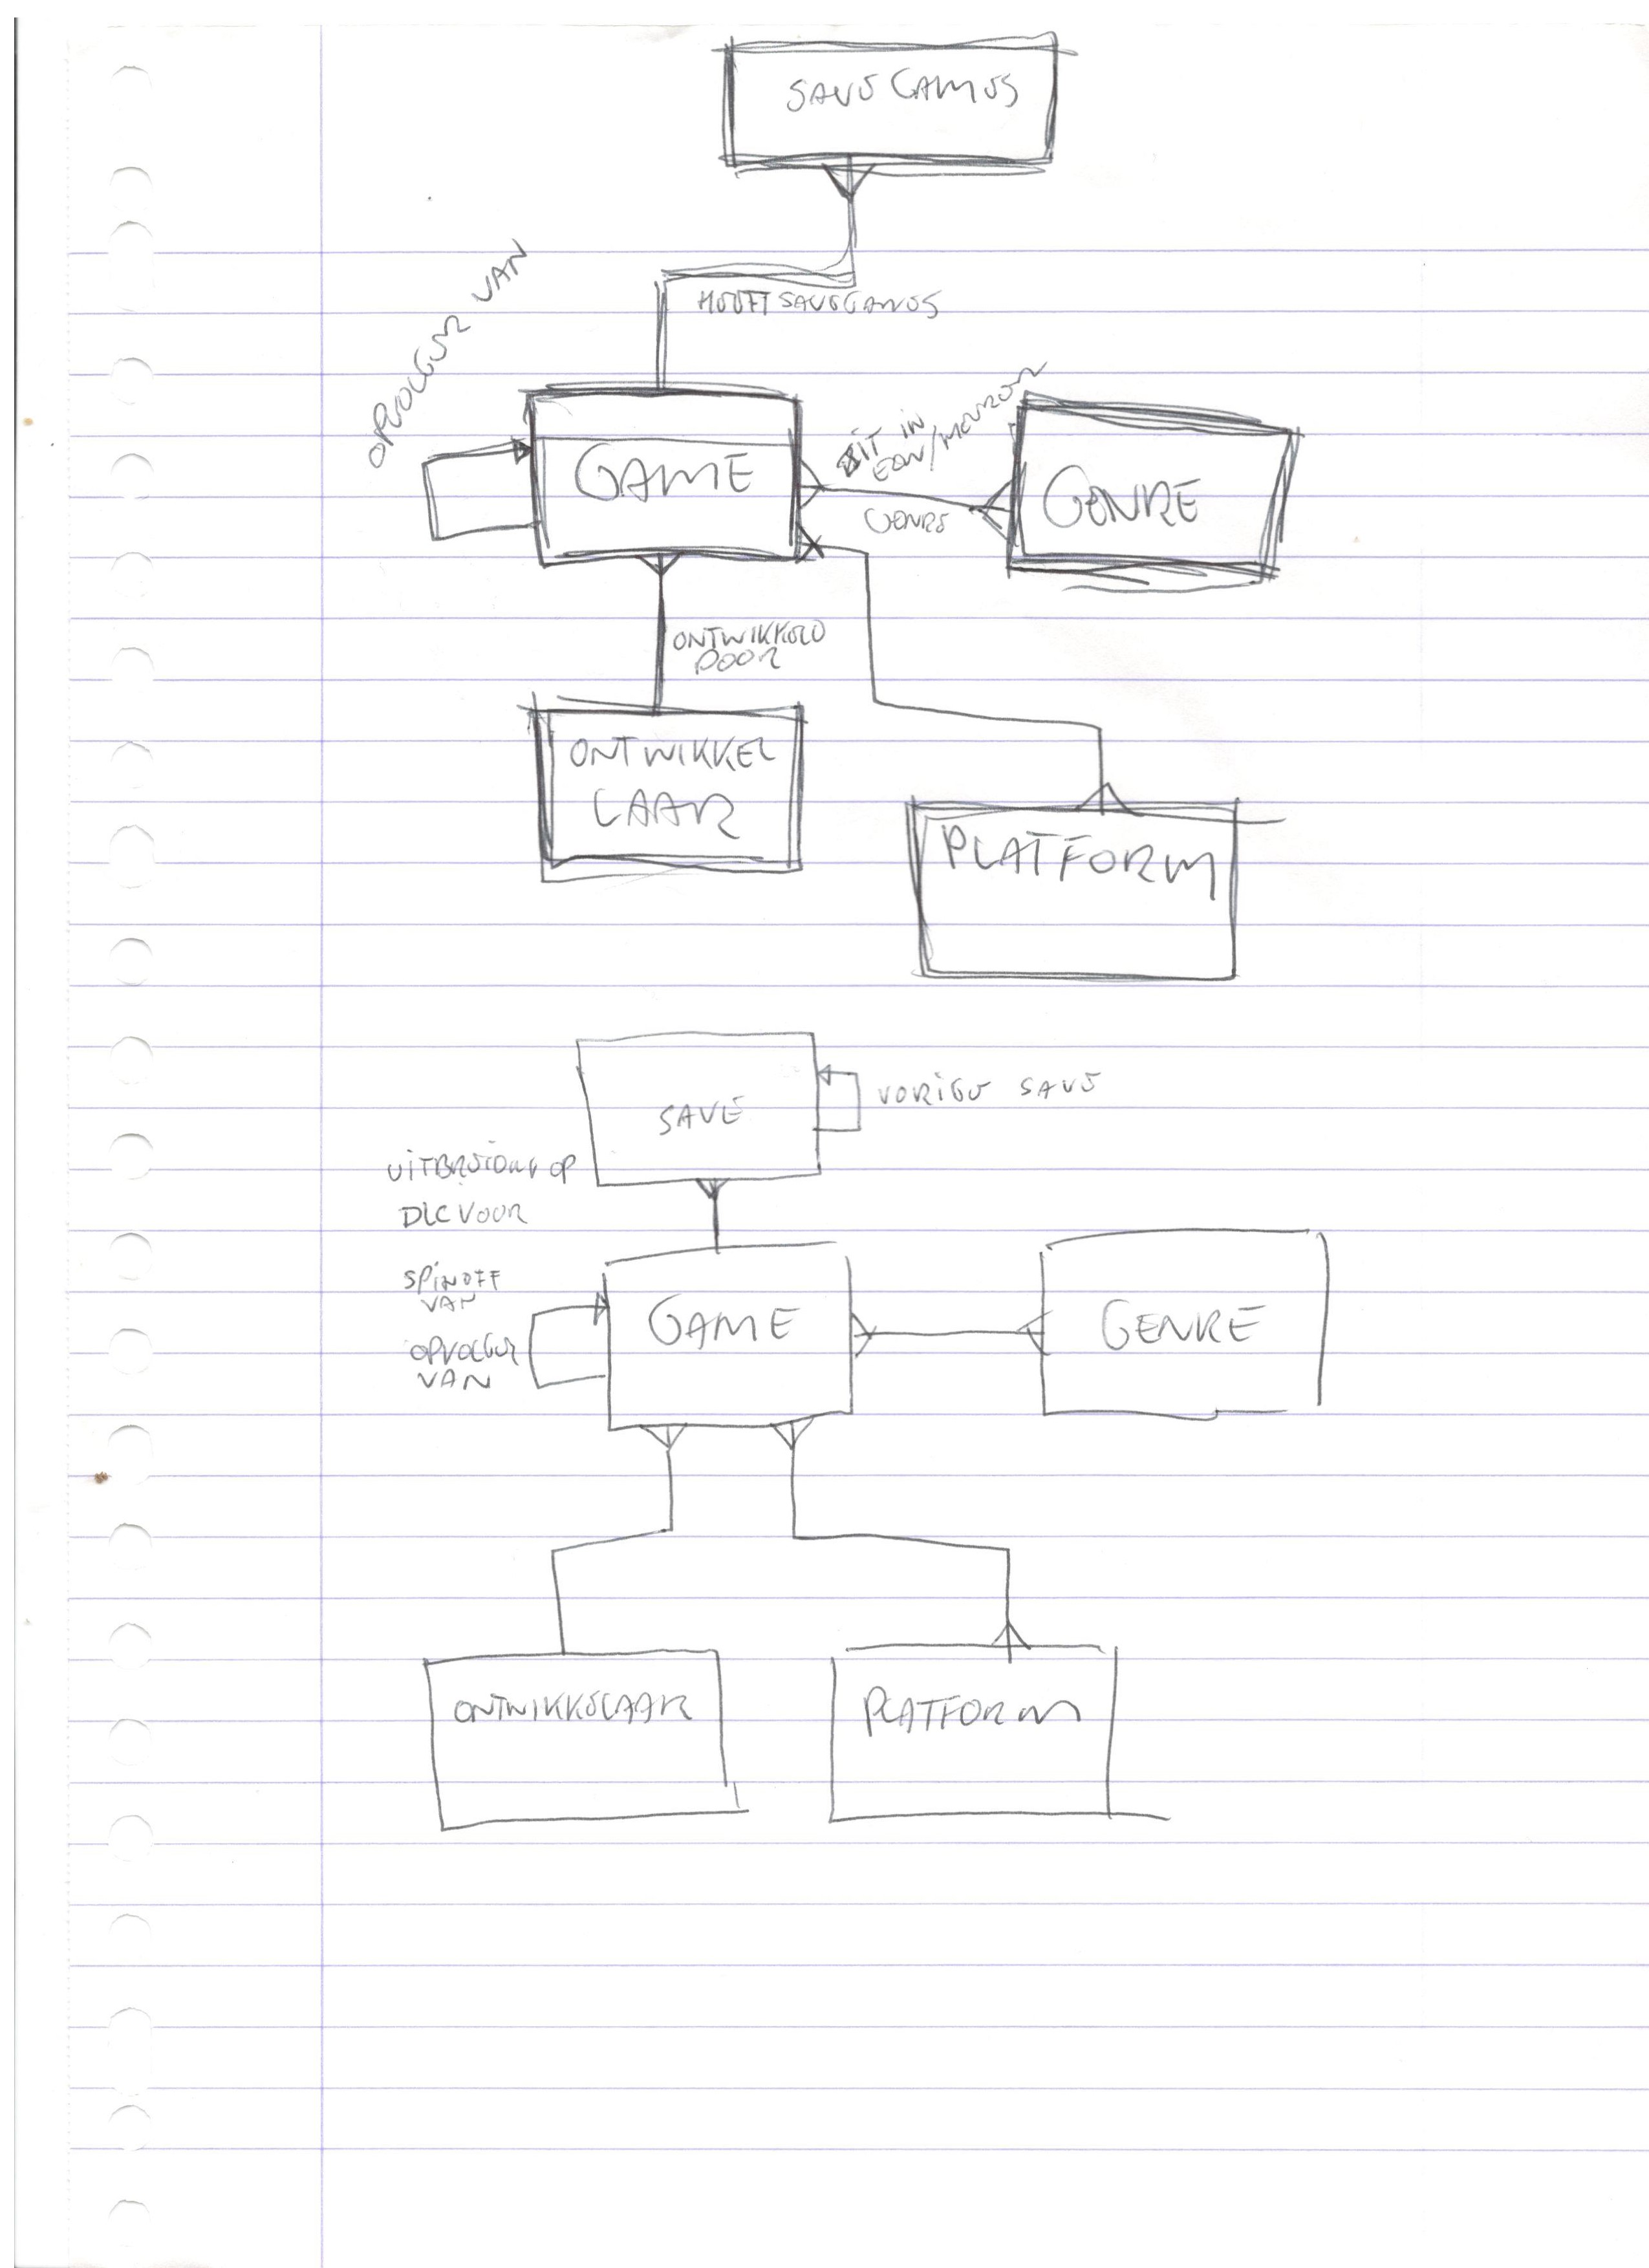 SAVEGAMES
HEEFT SAVEGAMES
OPVOLGER VAN
GAME
ZIT IN
EEN/MEERDER
GENRE
GENRE
ONTWIKKELD
DOOR
ONTWIKKEL
LAAR
PLATFORM
SAVE
VORIGE SAVE
UITBREIDING OP
DLC VOOR
SPINOFF
VAN
OPVOLGER
VAN
GAME
GENRE
ONTWIKKELAAR
PLATFORM